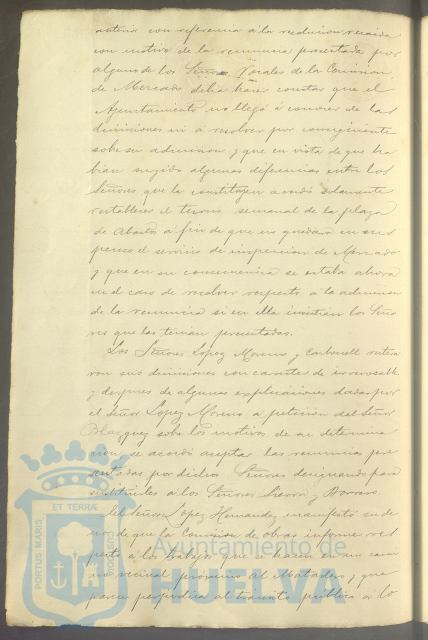 anterior con referencia á la resolucion recaida
con motivo de la renuncia presentada por
alguno de los Señores Vocales de la Comision
de Mercado debia hacer constar que el
Ayuntamiento no llegó á conocer de las
dimisiones ni á resolver por consiguiente
sobre su admision y que en vista de que ha
bian surgido algunas diferencias entre los
Señores que la constituyen acordó solamente
restablecer el turno semanal de la plaza
de Abastos á fin de que no quedara en sus
penso el servicio de inspeccion de Mercado
y que en su consecuencia se estaba ahora
en el caso de resolver respecto á la admision
de la renuncia si en ella insistian los Seño
res que las tenian presentadas.
Los Señores Lopez Moreno y Carbonell reitera
ron sus dimisiones con caracter de irrevocable
y despues de algunas explicaciones dadas por
el Señor Lopez Moreno á peticion del Señor
Blazquez sobre los motivos de su determina
cion, se acordó aceptar las renuncias pre
sentadas por dichos Señores designando para
sustituirles á los Señores y
El Señor Lopez Hernandez manifestó su de
seo de que la Comision de obras informe res
pecto á los trabajos que se hacen en un cami
no vecinal proximo al Matadero y que
parece perjudica al transito público á lo
PORTUS MARIS ET TERRAE
Ayuntamiento de
HUELVA